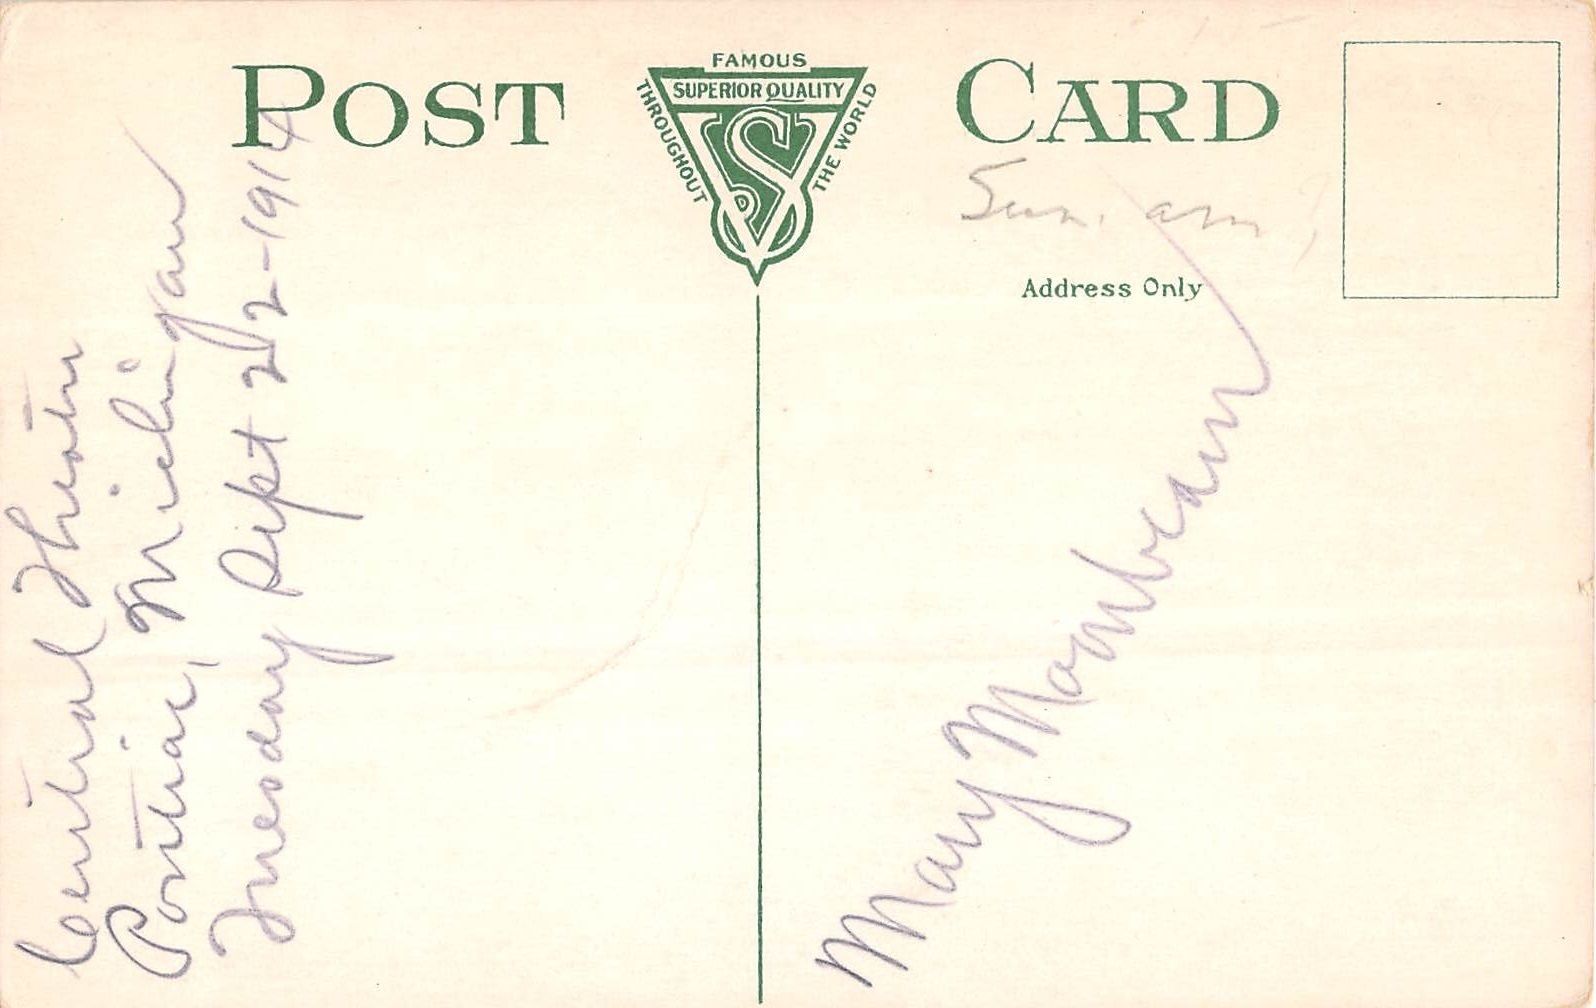 POST CARD
FAMOUS
SUPERIOR QUALITY
THROUGHOUT
THE WORLD
VS
Sun. am
Address Only
Central
Pontiac, Michigan
Tuesday Sept 22-1914
Mary Moonbeam